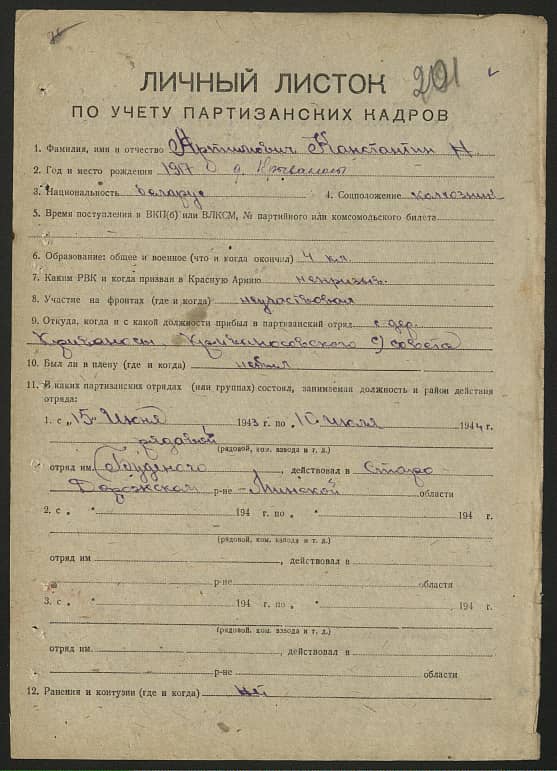 201
ЛИЧНЫЙ ЛИСТОК
ПО УЧЕТУ ПАРТИЗАНСКИХ КАДРОВ
1. Фамилия, имя и отчество Артимович Константин Н.
2. Год и место рождения 1917 д.
3. Национальность беларус 4. Соцположение колхозник
5. Время поступления в ВКП(б) или ВЛКСМ, № партийного или комсомольского билета
6. Образование: общее и военное (что и когда окончил) 4 кл.
7. Каким РВК и когда призван в Красную Армию непризыв.
8. Участие на фронтах (где и когда) неучаствовал
9. Откуда, когда и с какой должности прибыл в партизанский отряд с дер.
Кривоносы, Кривоносовского с/совета
10. Был ли в плену (где и когда) небыл
11. В каких партизанских отрядах (или группах) состоял, занимаемая должность и район действия
отряда:
1. с „15“ Июня 1943 г. по „10 июля 1944 г.
рядавой
(рядовой, ком. взвода и т. д.)
отряд им Буденого, действовал в Старо-
Дорожском р-не Минской области
2. с „ “ 194 г. по „ “ 194 г.
(рядовой, ком. взвода и т. д.)
отряд им , действовал в
р-не области
3. с „ “ 194 г. по „ “ 194 г.
(рядовой, ком. взвода и т. д.)
отряд им , действовал в
р-не области
12. Ранения и контузии (где и когда) нет